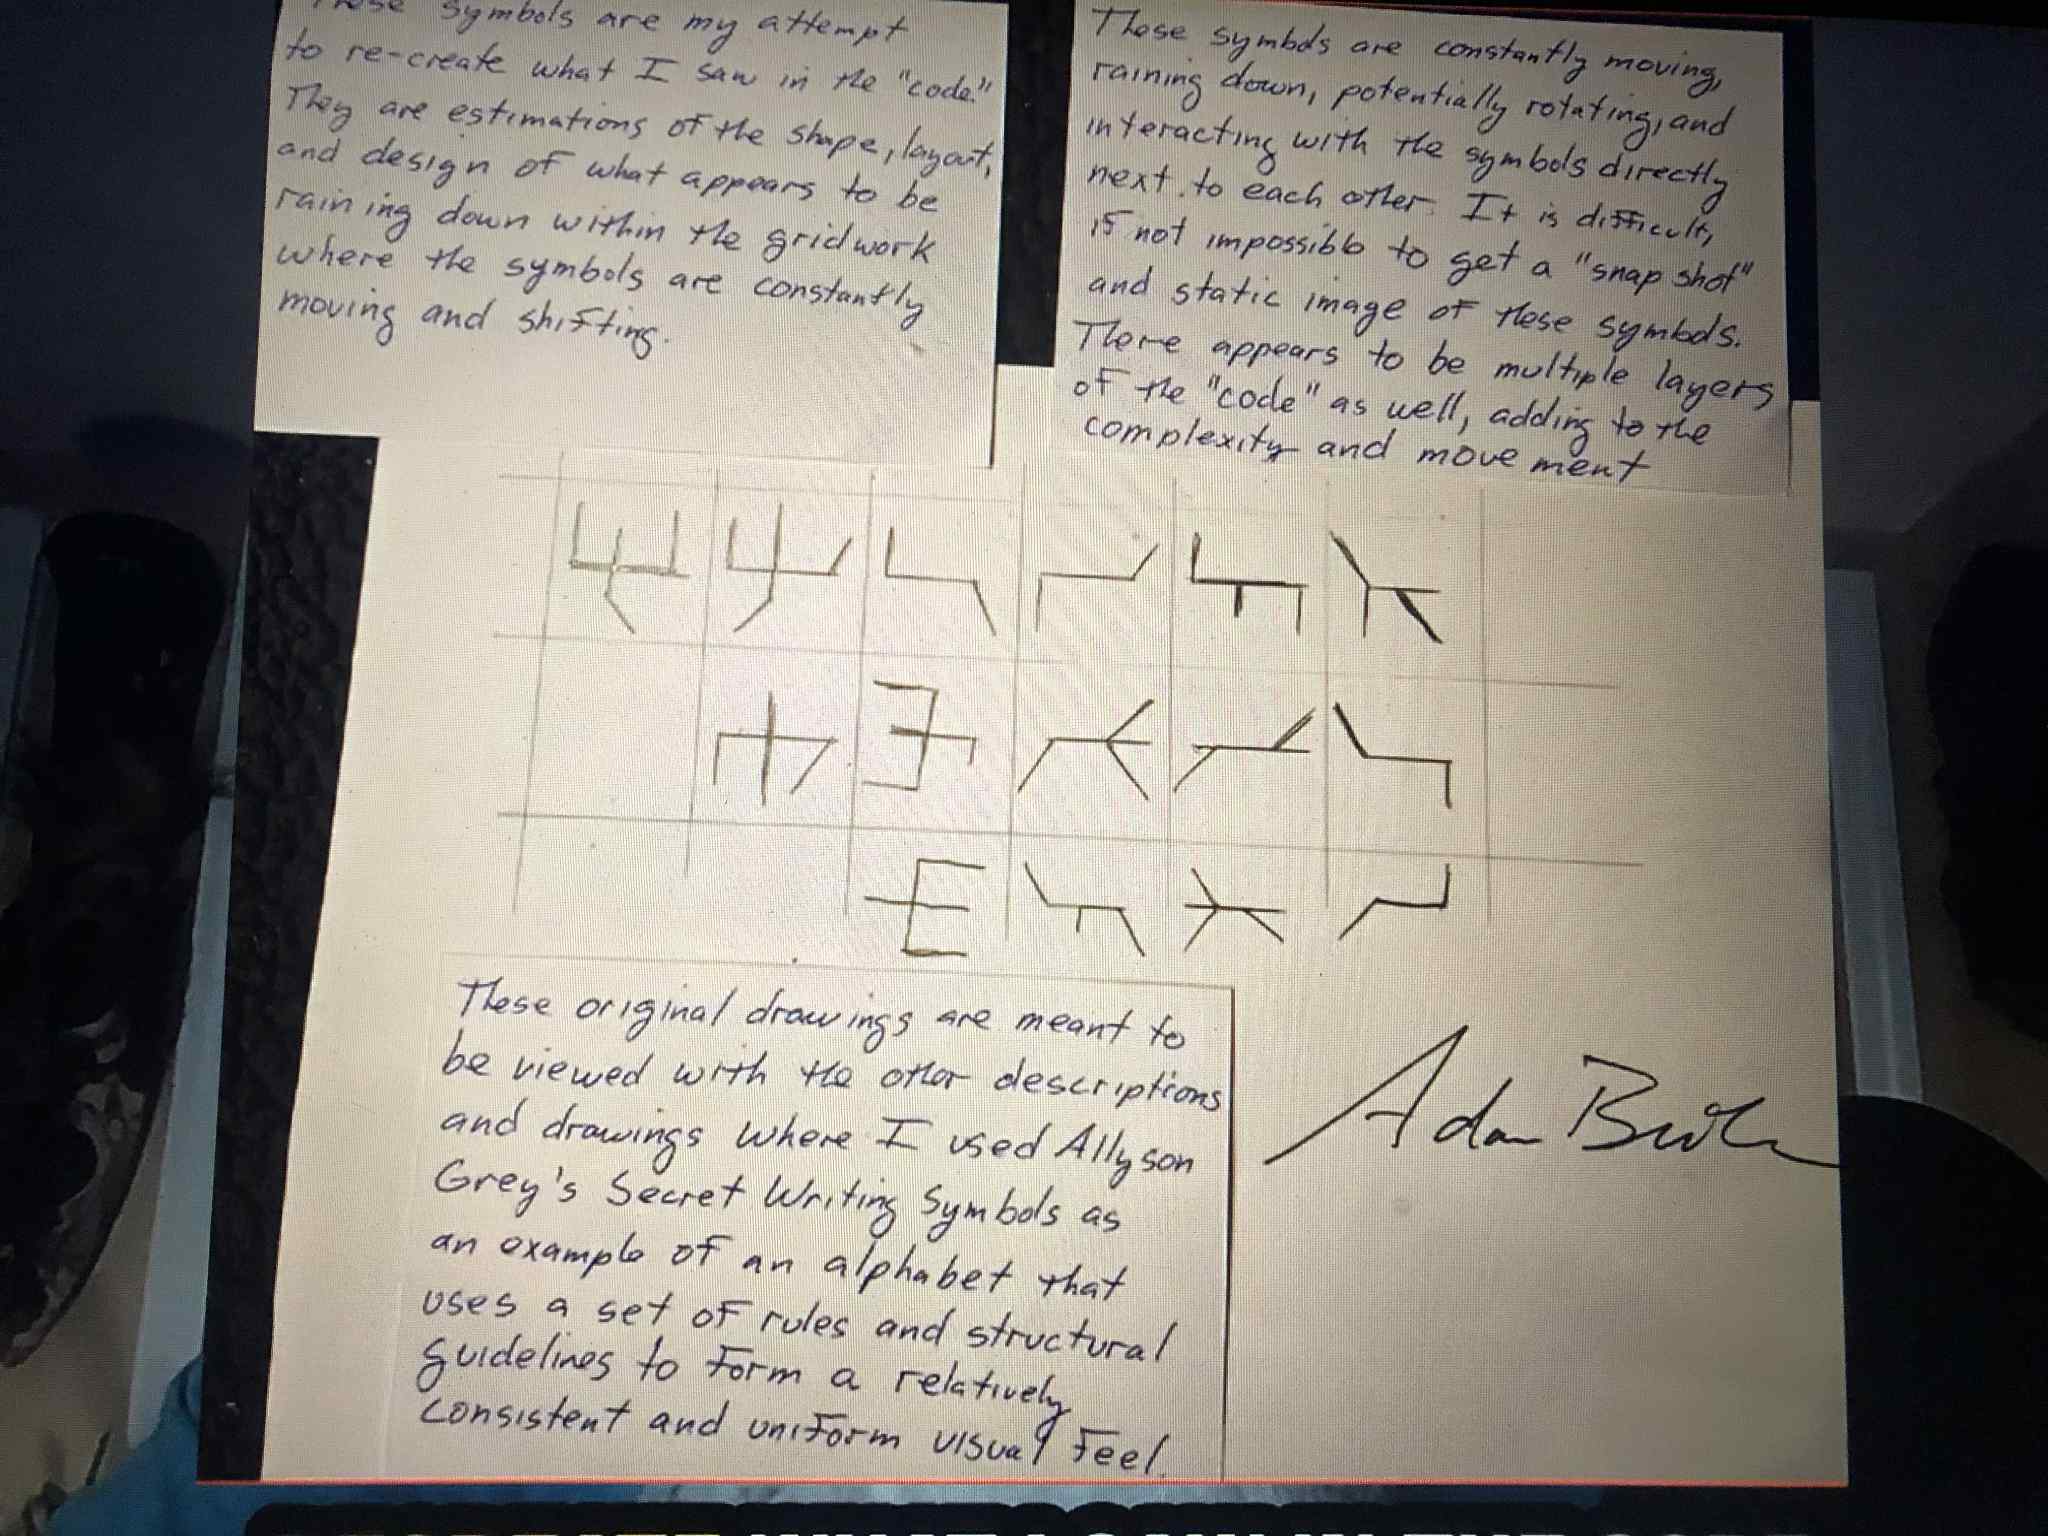 These symbols are my attempt
to re-create what I saw in the "code."
They are estimations of the shape, layout,
and design of what appears to be
raining down within the gridwork
where the symbols are constantly
moving and shifting.
These symbols are constantly moving,
raining down, potentially rotating, and
interacting with the symbols directly
next to each other. It is difficult,
if not impossible to get a "snap shot"
and static image of these symbols.
There appears to be multiple layers
of the "code" as well, adding to the
complexity and movement
These original drawings are meant to
be viewed with the other descriptions
and drawings where I used Allyson
Grey's Secret Writing Symbols as
an example of an alphabet that
uses a set of rules and structural
guidelines to form a relatively
consistent and uniform visual feel.
Adam